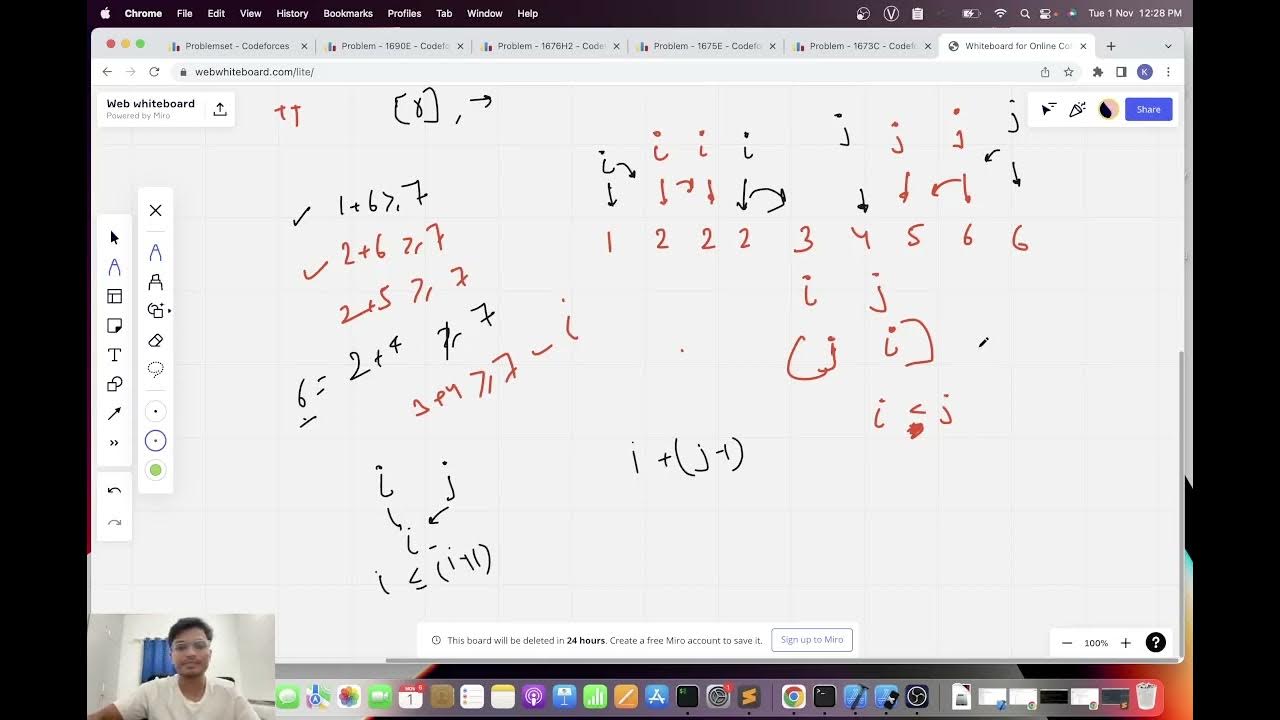 Chrome File Edit View History Bookmarks Profiles Tab Window Help
Tue 1 Nov 12:28 PM
Problemset - Codeforces
Problem - 1690E - Codef
Problem - 1676H2 - Code
Problem - 1675E - Codefo
Problem - 1673C - Codef
Whiteboard for Online Col
webwhiteboard.com/lite/
K
Web whiteboard
Powered by Miro
Share
i i i i j j j j
1+6≥7
2+6≥7
2+5≥7
2+4 7
6=
3+4≥7 i
1 2 2 2 3 4 5 6 6
i j
(j i)
i < j
i+(j-1)
i j
i
i ≤ (i+1)
This board will be deleted in 24 hours. Create a free Miro account to save it.
Sign up to Miro
100%